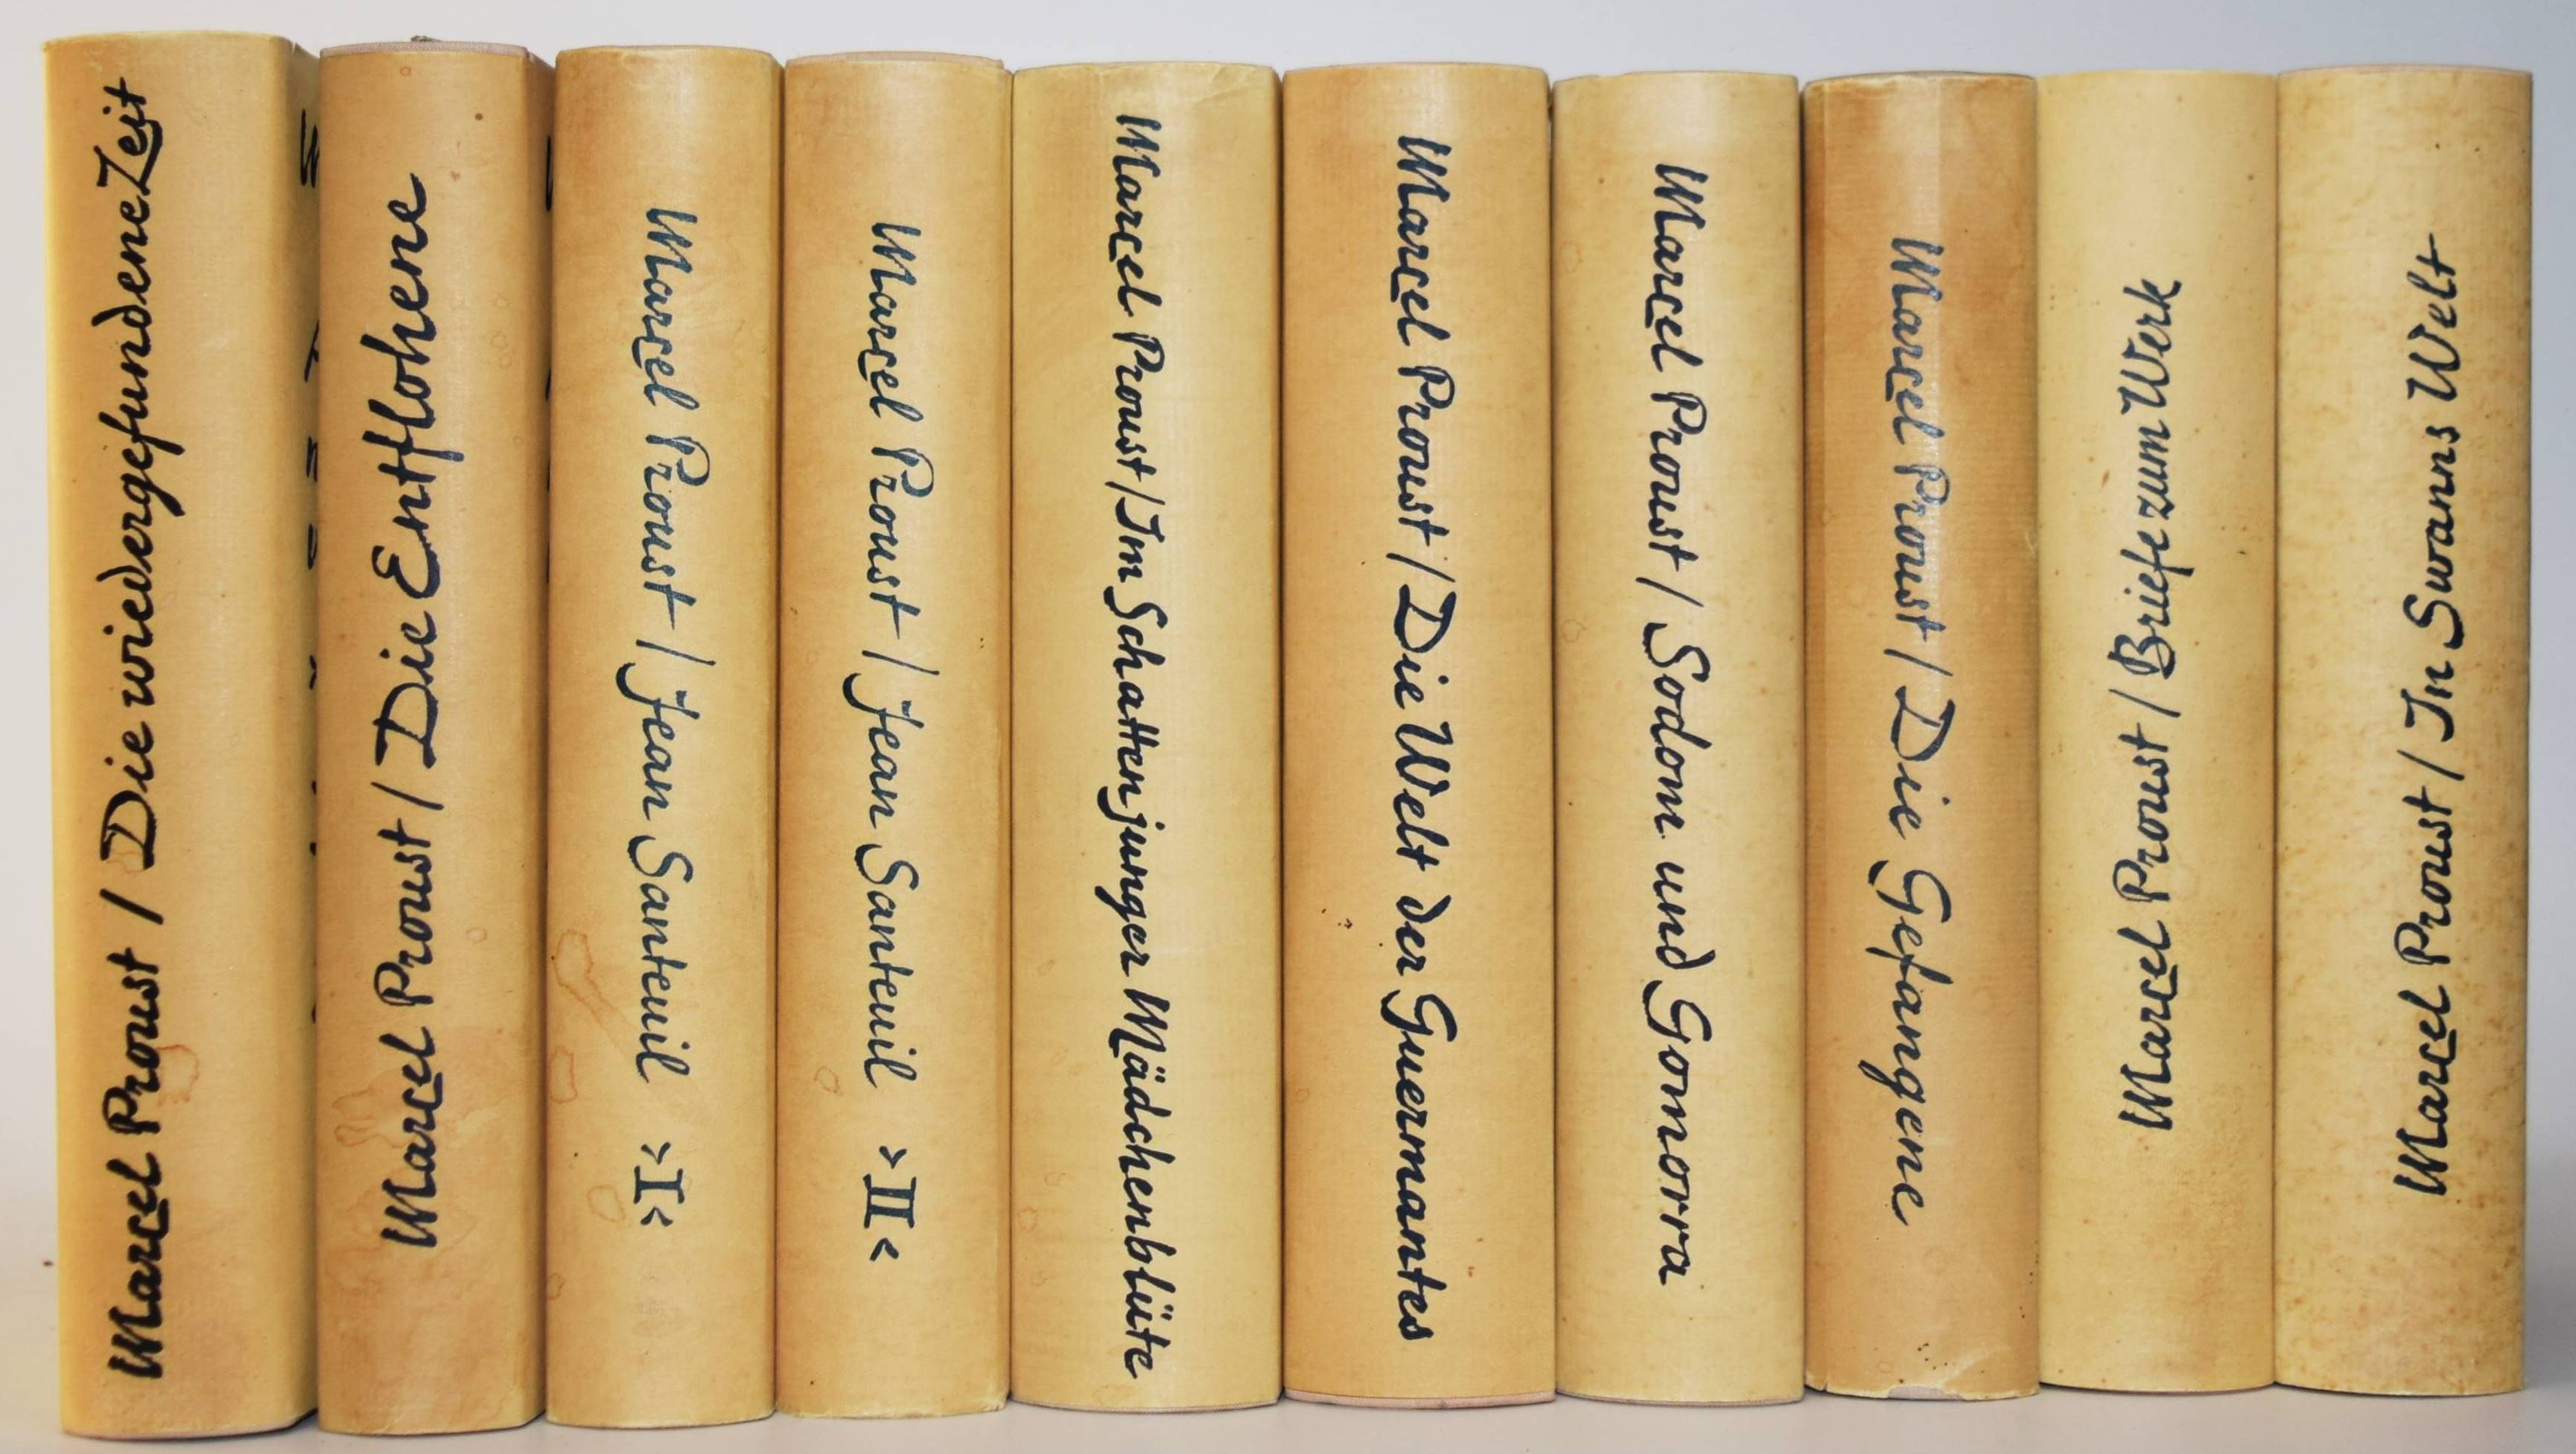 Marcel Proust / Die wiedergefundene Zeit
Marcel Proust / Die Entflohene
Marcel Proust / Jean Santeuil >I<
Marcel Proust / Jean Santeuil >II<
Marcel Proust / Im Schatten junger Mädchenblüte
Marcel Proust / Die Welt der Guermantes
Marcel Proust / Sodom und Gomorra
Marcel Proust / Die Gefangene
Marcel Proust / Briefe zum Werk
Marcel Proust / In Swanns Welt